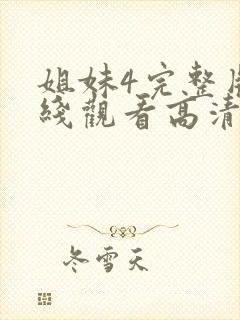 姐妹4完整
綫觀看高清
冬雪天